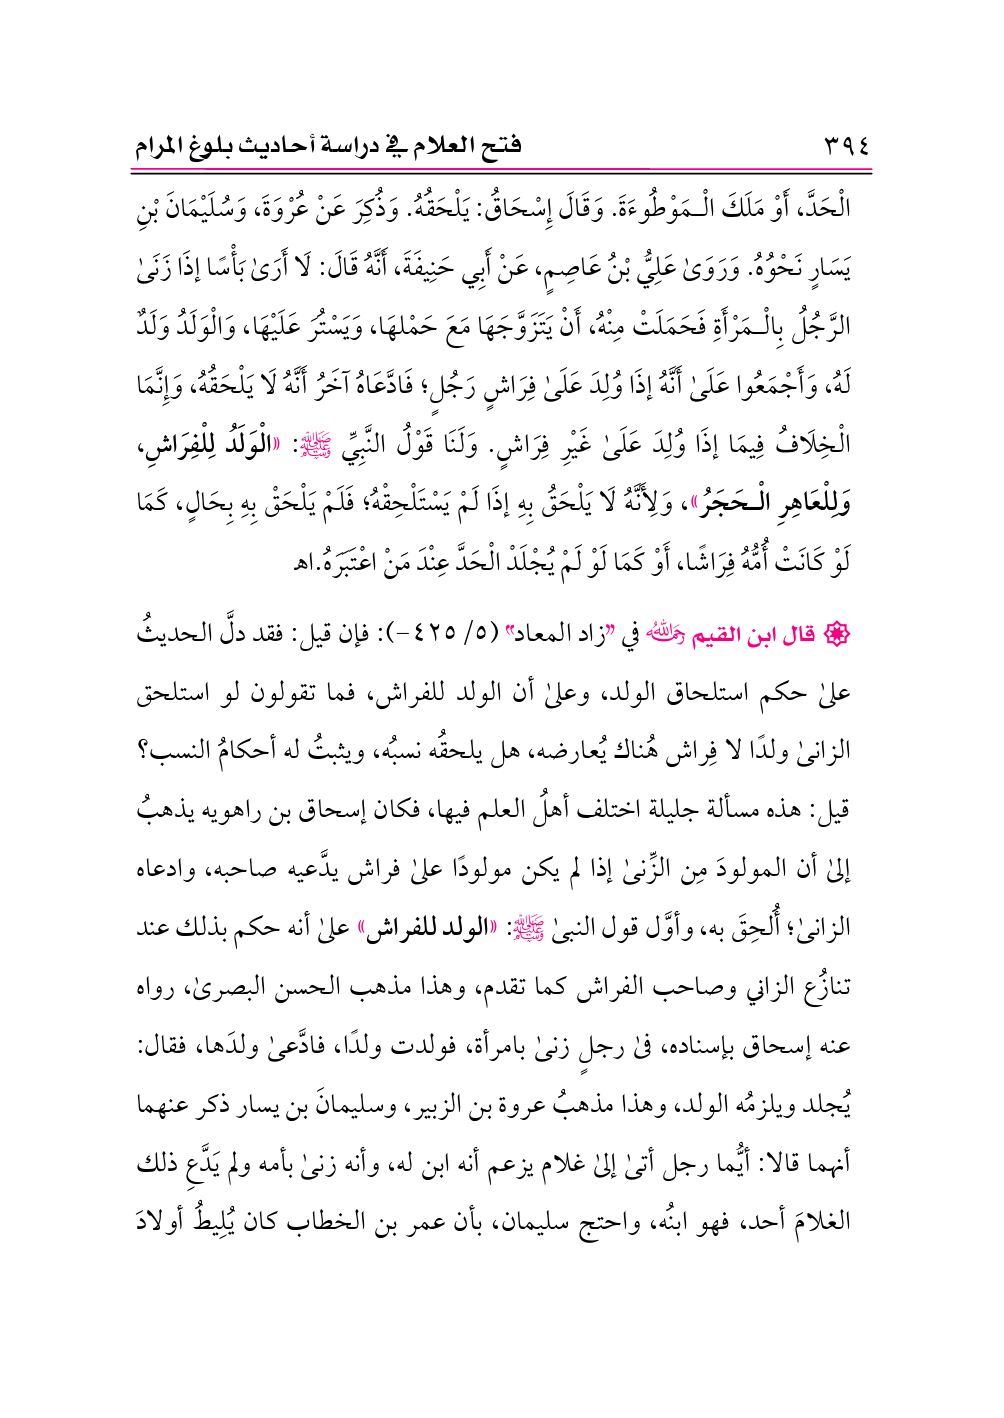 ٣٩٤ فتح العلام في دراسة أحاديث بلوغ المرام
الْحَدَّ، أَوْ مَلَكَ الْـمَوْطُوءَةَ. وَقَالَ إِسْحَاقُ: يَلْحَقُهُ. وَذُكِرَ عَنْ عُرْوَةَ، وَسُلَيْمَانَ بْنِ
يَسَارٍ نَحْوُهُ. وَرَوَىٰ عَلِيُّ بْنُ عَاصِمٍ، عَنْ أَبِي حَنِيفَةَ، أَنَّهُ قَالَ: لَا أَرَىٰ بَأْسًا إذَا زَنَىٰ
الرَّجُلُ بِالْـمَرْأَةِ فَحَمَلَتْ مِنْهُ، أَنْ يَتَزَوَّجَهَا مَعَ حَمْلهَا، وَيَسْتُرَ عَلَيْهَا، وَالْوَلَدُ وَلَدٌ
لَهُ، وَأَجْمَعُوا عَلَىٰ أَنَّهُ إذَا وُلِدَ عَلَىٰ فِرَاشِ رَجُلٍ؛ فَادَّعَاهُ آخَرُ أَنَّهُ لَا يَلْحَقُهُ، وَإِنَّمَا
الْخِلَافُ فِيمَا إذَا وُلِدَ عَلَىٰ غَيْرِ فِرَاشٍ. وَلَنَا قَوْلُ النَّبِيِّ ﷺ: «الْوَلَدُ لِلْفِرَاشِ،
وَلِلْعَاهِرِ الْـحَجَرُ»، وَلِأَنَّهُ لَا يَلْحَقُ بِهِ إذَا لَمْ يَسْتَلْحِقْهُ؛ فَلَمْ يَلْحَقْ بِهِ بِحَالٍ، كَمَا
لَوْ كَانَتْ أُمُّهُ فِرَاشًا، أَوْ كَمَا لَوْ لَمْ يُجْلَدْ الْحَدَّ عِنْدَ مَنْ اعْتَبَرَهُ.اﻫ
قال ابن القيم رحمه الله في "زاد المعاد" (٥/ ٤٢٥-): فإن قيل: فقد دلَّ الحديثُ
علىٰ حكم استلحاق الولد، وعلىٰ أن الولد للفراش، فما تقولون لو استلحق
الزانىٰ ولدًا لا فِراش هُناك يُعارضه، هل يلحقُه نسبُه، ويثبتُ له أحكامُ النسب؟
قيل: هذه مسألة جليلة اختلف أهلُ العلم فيها، فكان إسحاق بن راهويه يذهبُ
إلىٰ أن المولودَ مِن الزِّنىٰ إذا لم يكن مولودًا علىٰ فراش يدَّعيه صاحبه، وادعاه
الزانىٰ؛ أُلحِقَ به، وأوَّل قول النبىٰ ﷺ: «الولد للفراش» علىٰ أنه حكم بذلك عند
تنازُع الزاني وصاحب الفراش كما تقدم، وهذا مذهب الحسن البصرىٰ، رواه
عنه إسحاق بإسناده، فىٰ رجلٍ زنىٰ بامرأة، فولدت ولدًا، فادَّعىٰ ولدَها، فقال:
يُجلد ويلزمُه الولد، وهذا مذهبُ عروة بن الزبير، وسليمانَ بن يسار ذكر عنهما
أنهما قالا: أيُّما رجل أتىٰ إلىٰ غلام يزعم أنه ابن له، وأنه زنىٰ بأمه ولم يَدَّعِ ذلك
الغلامَ أحد، فهو ابنُه، واحتج سليمان، بأن عمر بن الخطاب كان يُلِيطُ أولادَ